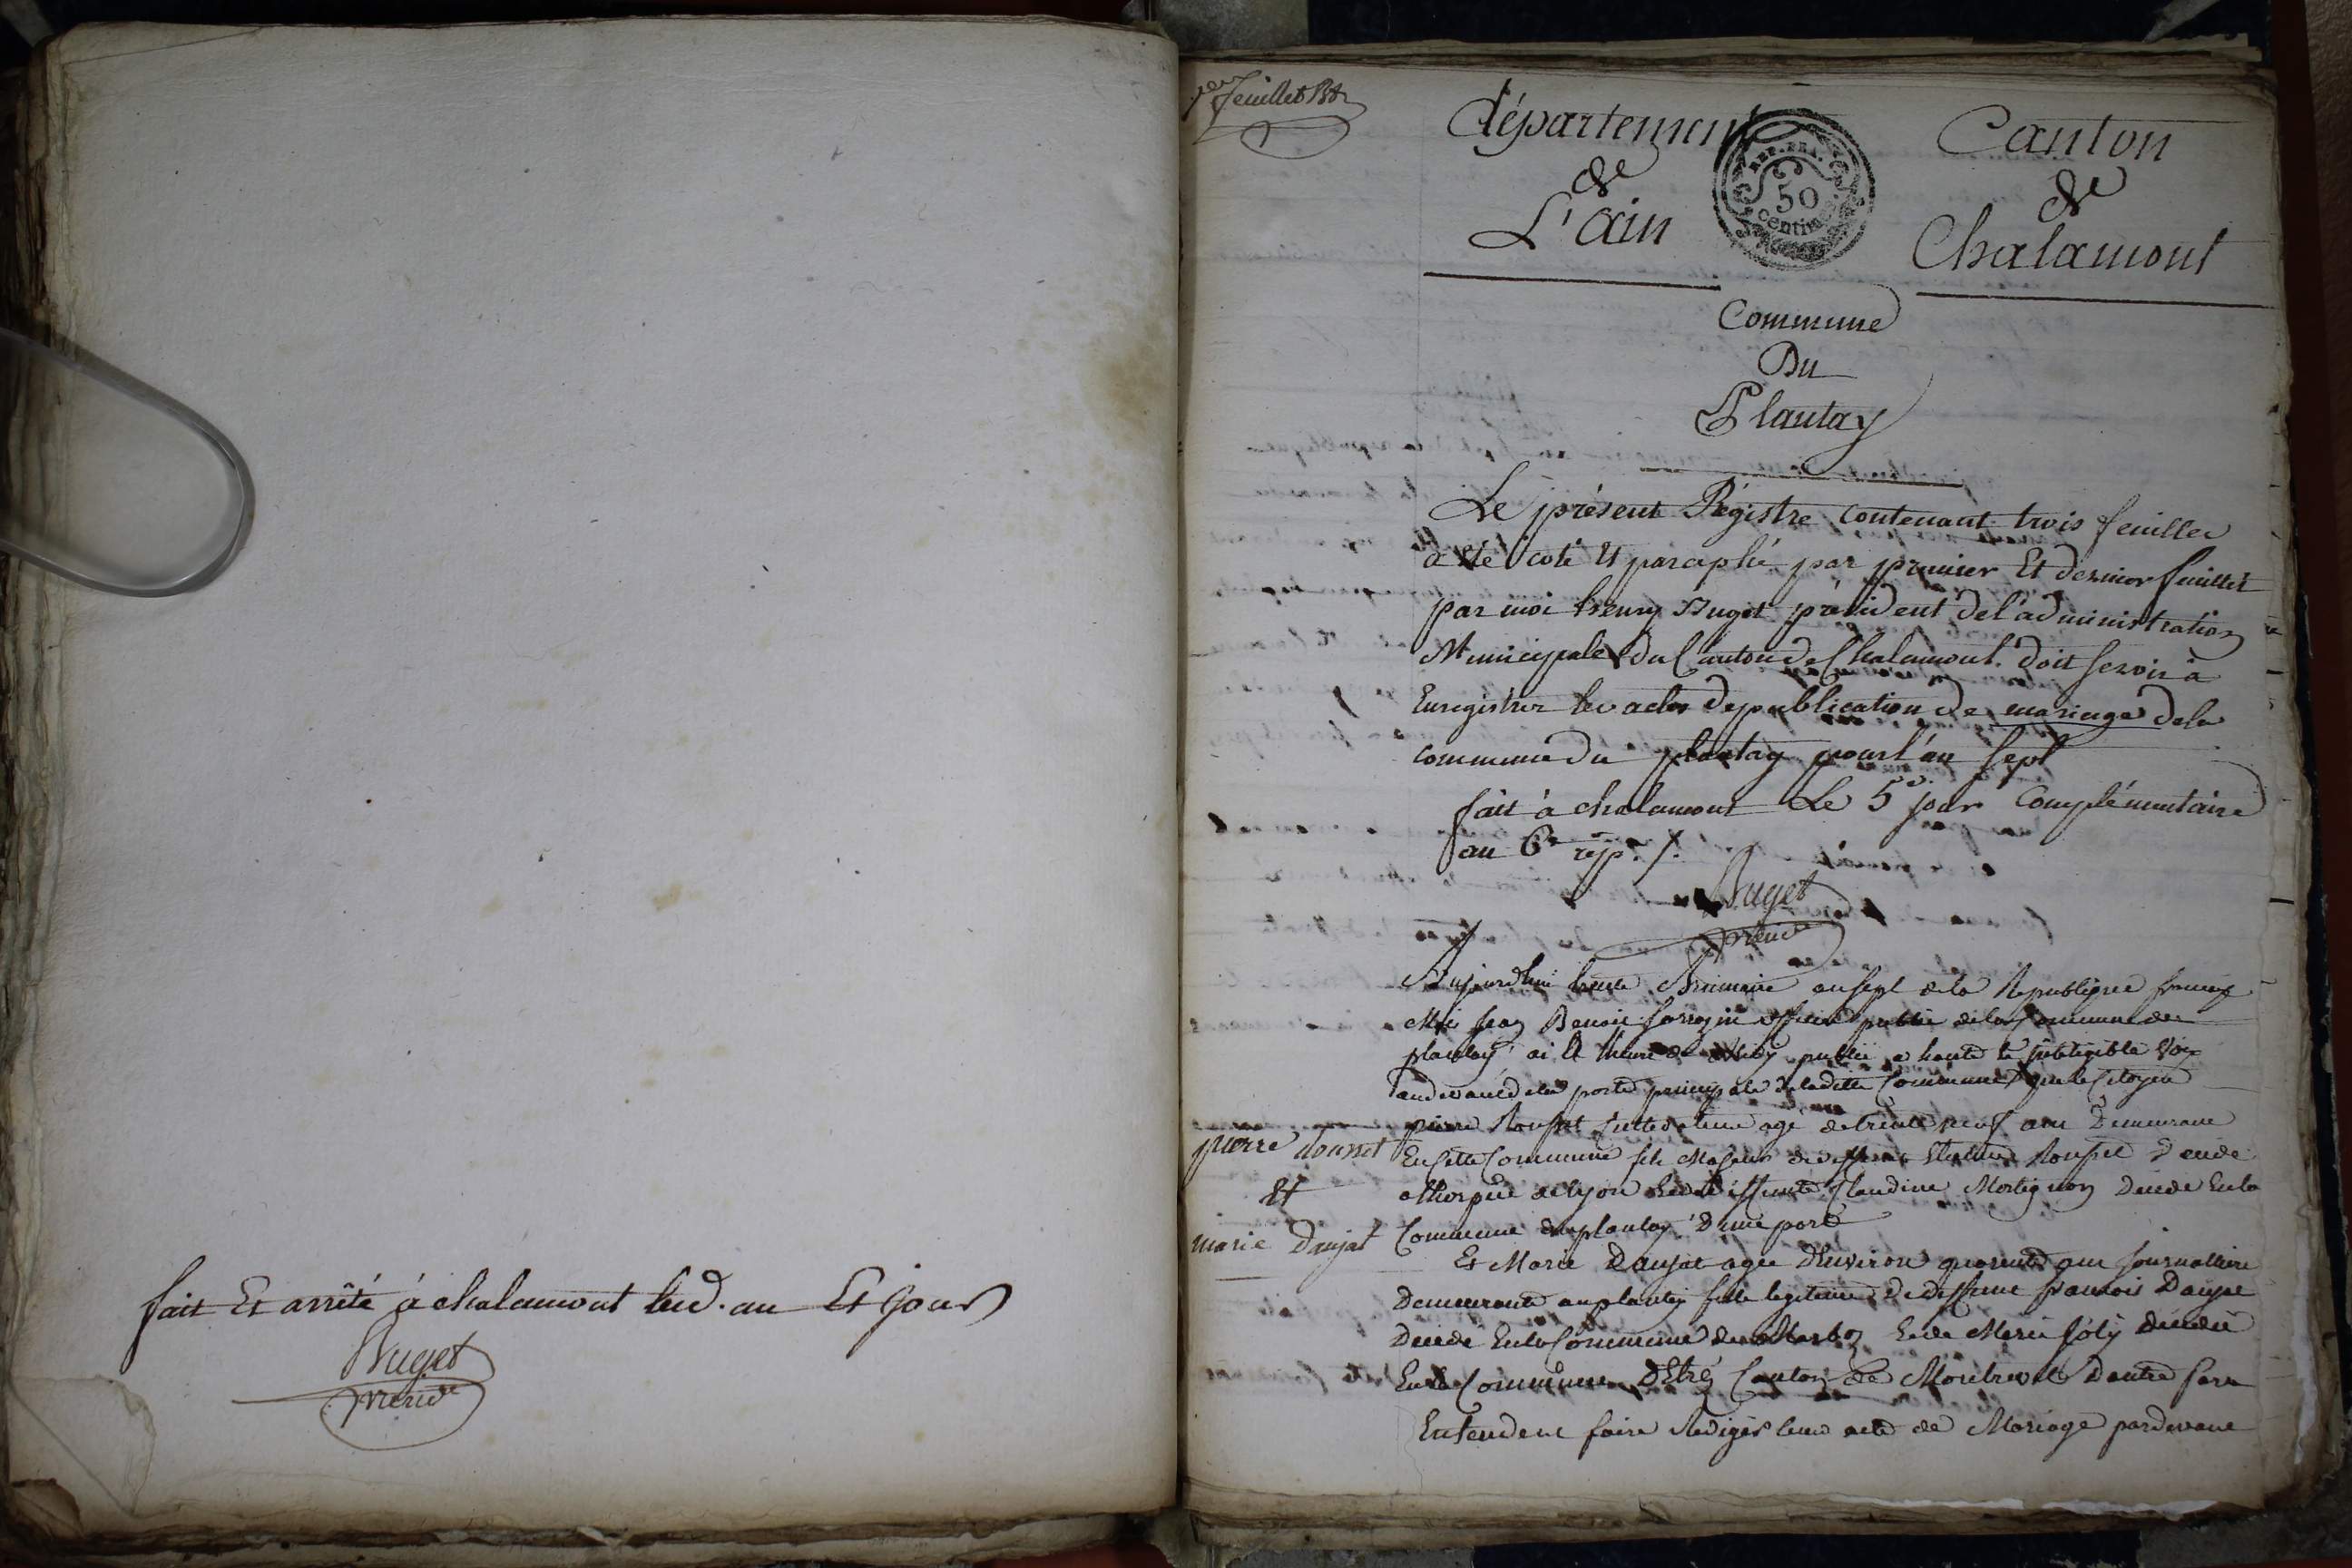 fait Et arrêté à chalamont led. an Et jour
Buget
presid.te
1er feuillet Bt
Département
de
L'ain
REP. FRA.
50
centim.
Canton
de
Chalamont
Commune
Du
Plantay
Le présent Régistre contenant trois feuilles
a été coté Et paraphé par premier Et dernier feuillet
par moi henry Buget président de l'administration
Municipale du Canton de Chalamont. doit servir à
Enregistrer les actes de publication de mariage de la
commune du plantay pour l'an sept
fait à chalamont Le 5e jour Complémentaire
an 6e rep. /.
Buget
presid.te
Aujourdhui trente Brimaire an sept de la Republique
Moi Benoit officier public de la Commune de
plantay ai publié a haute
audevant de la porte principale de ladite Commune que le Citoyen
pierre Rousset age de trente neuf ans Demeurant
En cette Commune fils Rousset décédé
a de lyon Claudine Décédé En la
Commune du plantay D'une part
pierre Rousset
Et
marie Daujat
Et Marie Daujat agée D'Environ quarente ans Journalliere
Demeurante au plantay fille legitime De deffunt francois Daujat
Décédé En la Commune de Marboz Et de Marie Joly décédé
En la Commune D'Etréz Canton de Montrevel D'autre part
Entendent faire Rediger leur acte de Mariage pardevant